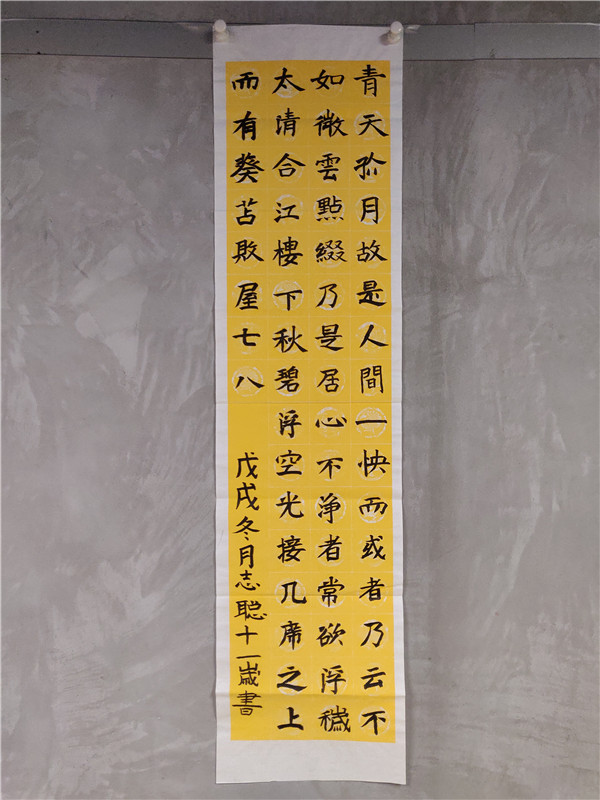 青天孤月故是人間一快而或者乃云不
如微雲點綴乃是居心不淨者常欲浮穢
太清合江樓下秋碧浮空光接几席之上
而有葵苫敗屋七八
戊戌冬月志聪十一歲書